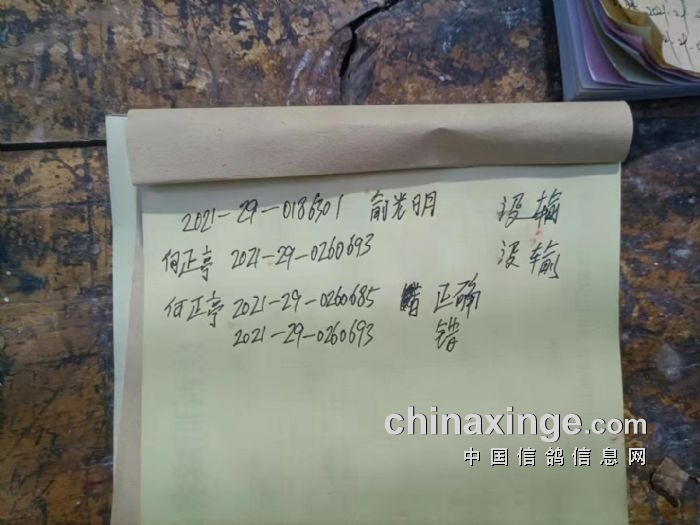 2021-29-0186301 俞光明 没输
何正亭 2021-29-0260693 没输
何正亭 2021-29-0260685 正确
2021-29-0260693 错
chinaxinge.com
中国信鸽信息网